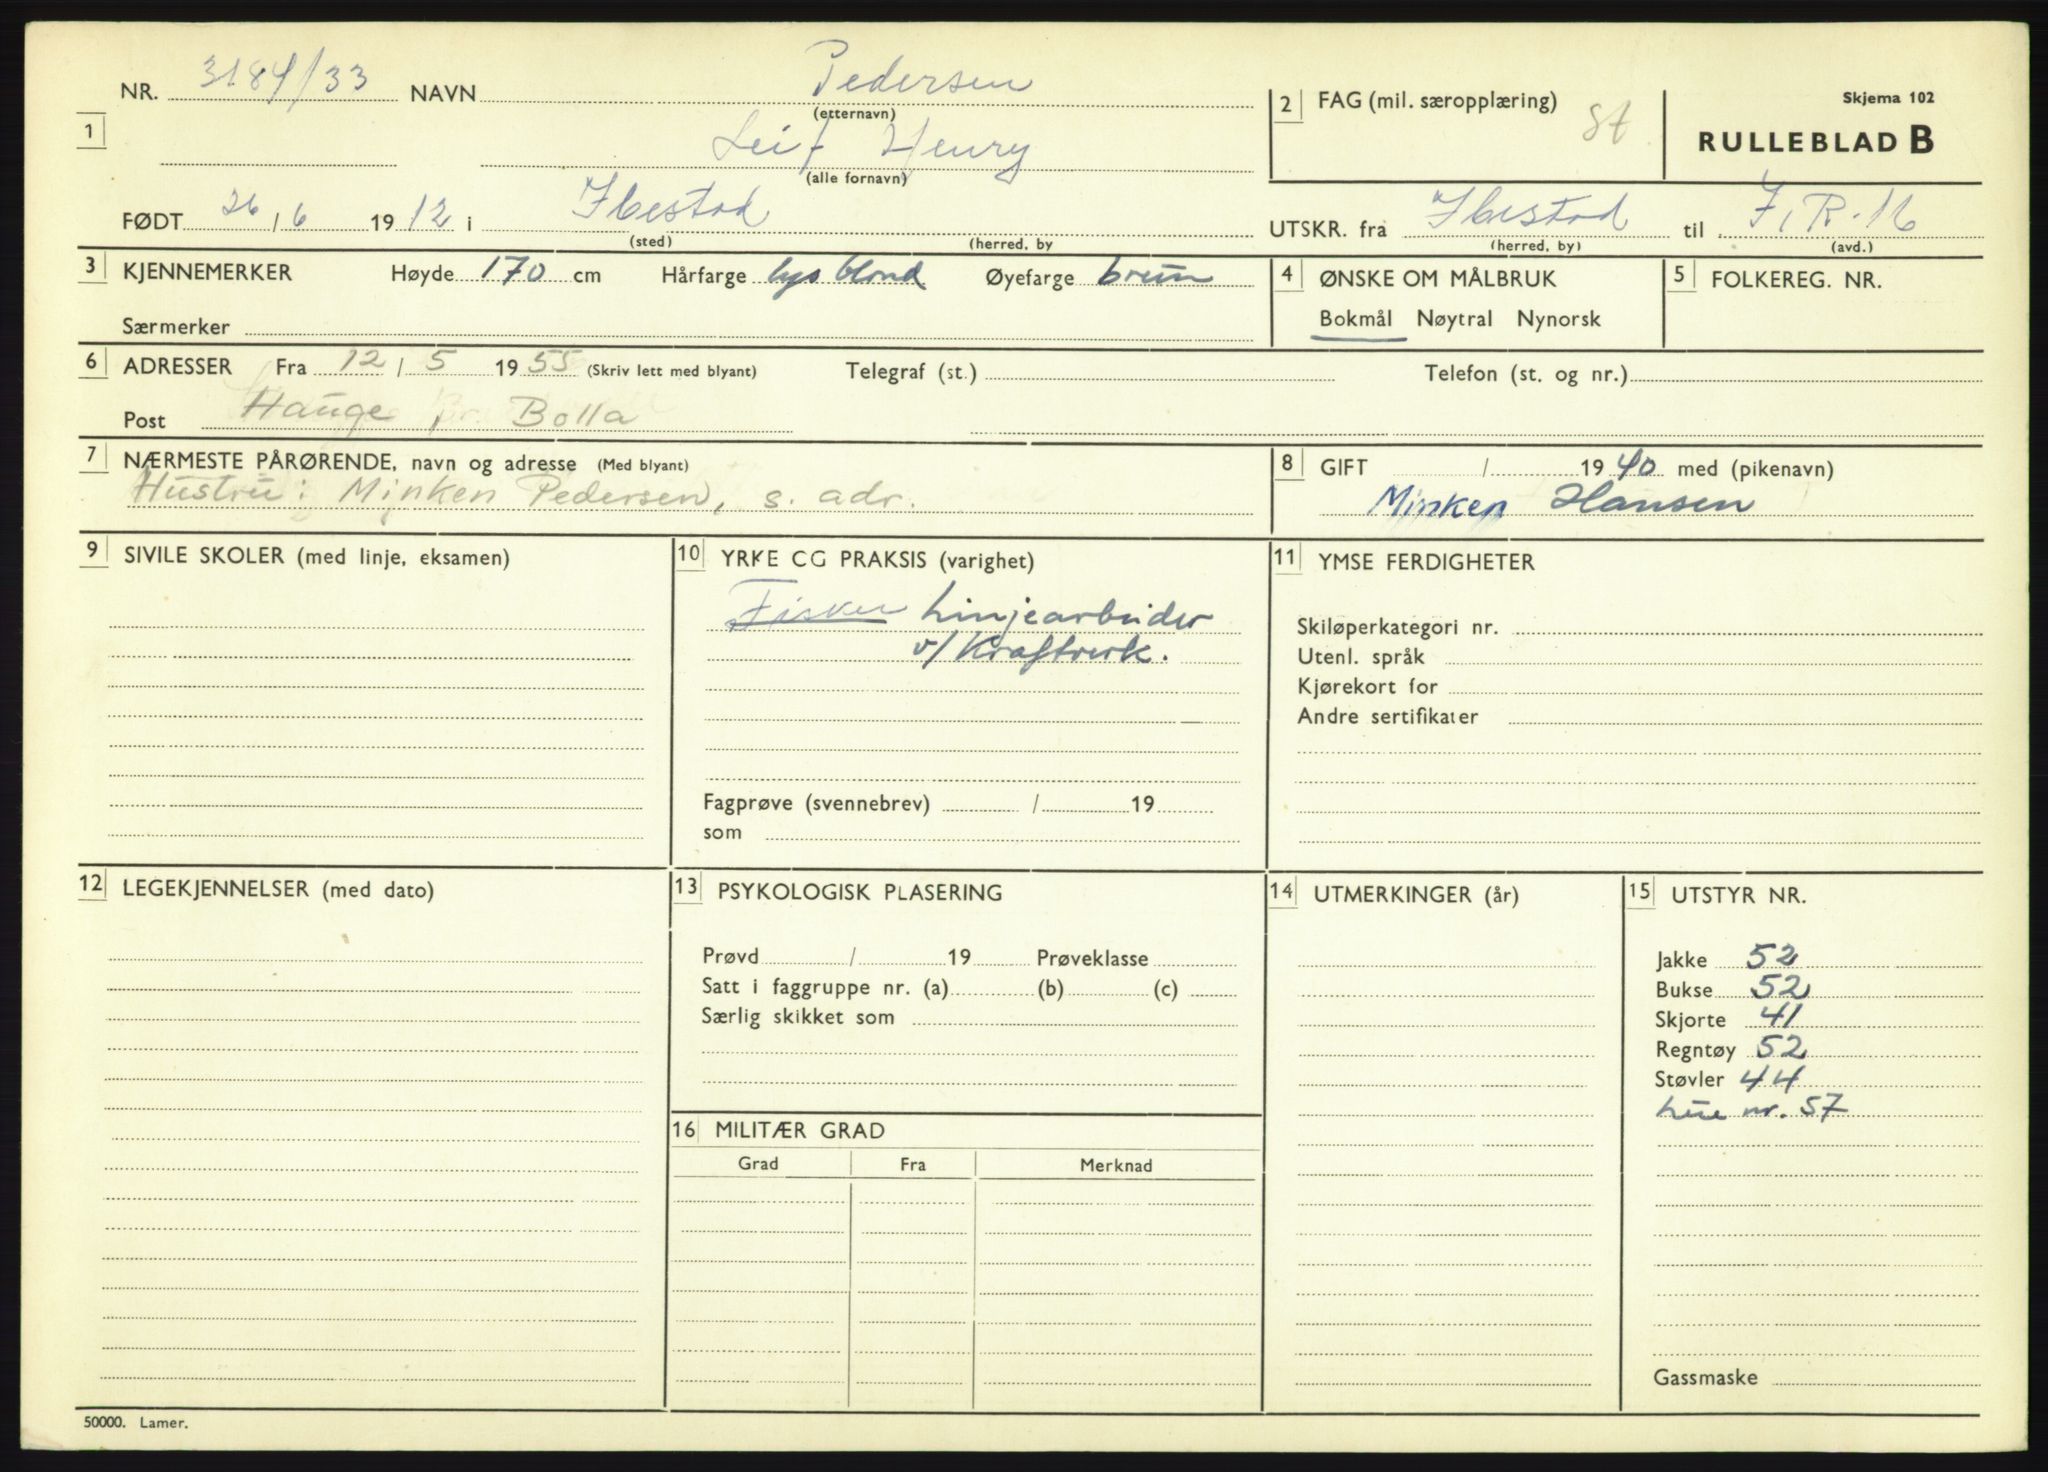 NR. 3184/33 NAVN Pedersen
(etternavn)
1
Leif Henry
(alle fornavn)
2 FAG (mil. særopplæring) St
Skjema 102
RULLEBLAD B
FØDT 26/6 1912 i Ibestad
(sted) (herred, by
UTSKR. fra Ibestad til I.R. 16
(herred, by) (avd.)
3 KJENNEMERKER Høyde 170 cm Hårfarge lys blond Øyefarge brun
Særmerker
4 ØNSKE OM MÅLBRUK
Bokmål Nøytral Nynorsk
5 FOLKEREG. NR.
6 ADRESSER Fra 12/5 1955 (Skriv lett med blyant) Telegraf (st.) Telefon (st. og nr.)
Post Hauge pr. Bolla
7 NÆRMESTE PÅRØRENDE, navn og adresse (Med blyant)
Hustru: Minken Pedersen, s. adr.
8 GIFT / 1940 med (pikenavn)
Minken Hansen
9 SIVILE SKOLER (med linje, eksamen)
10 YRKE CG PRAKSIS (varighet)
Fisker Linjearbeider
v/Kraftverk.
Fagprøve (svennebrev) / 19
som
11 YMSE FERDIGHETER
Skiløperkategori nr.
Utenl. språk
Kjørekort for
Andre sertifikater
12 LEGEKJENNELSER (med dato)
13 PSYKOLOGISK PLASERING
Prøvd / 19 Prøveklasse
Satt i faggruppe nr. (a) (b) (c)
Særlig skikket som
14 UTMERKINGER (år)
15 UTSTYR NR.
Jakke 52
Bukse 52
Skjorte 41
Regntøy 52
Støvler 44
Lue nr. 57
Gassmaske
16 MILITÆR GRAD
Grad Fra Merknad
50000. Lamer.